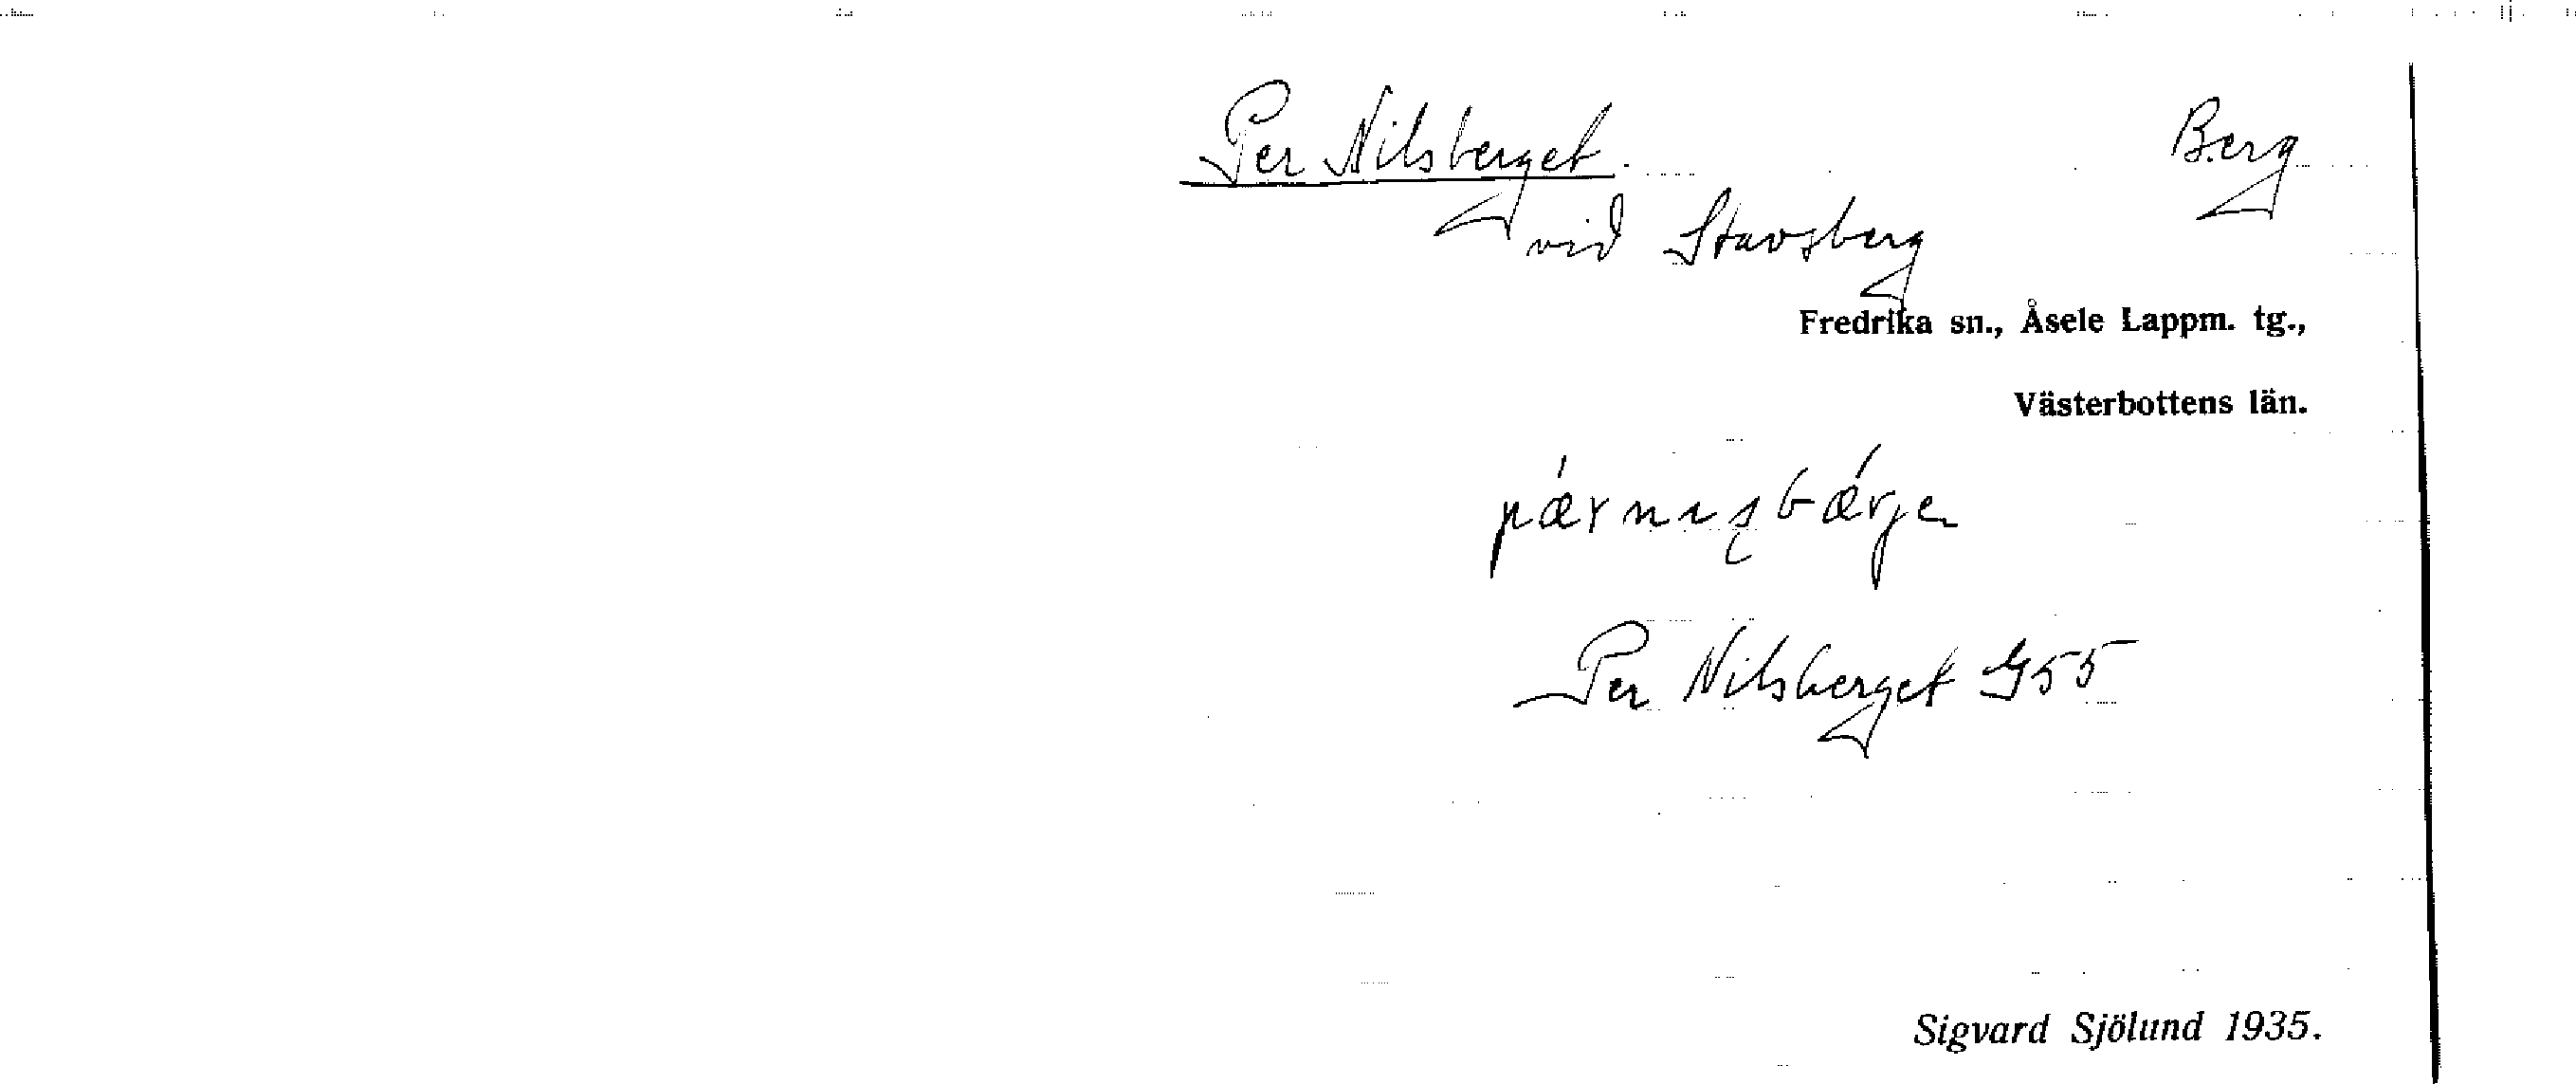 Per Nilsberget. Berg
vid Stavsberg
Fredrika sn., Åsele Lappm. tg.,
Västerbottens län.
Per Nilsberget G55
Sigvard Sjölund 1935.